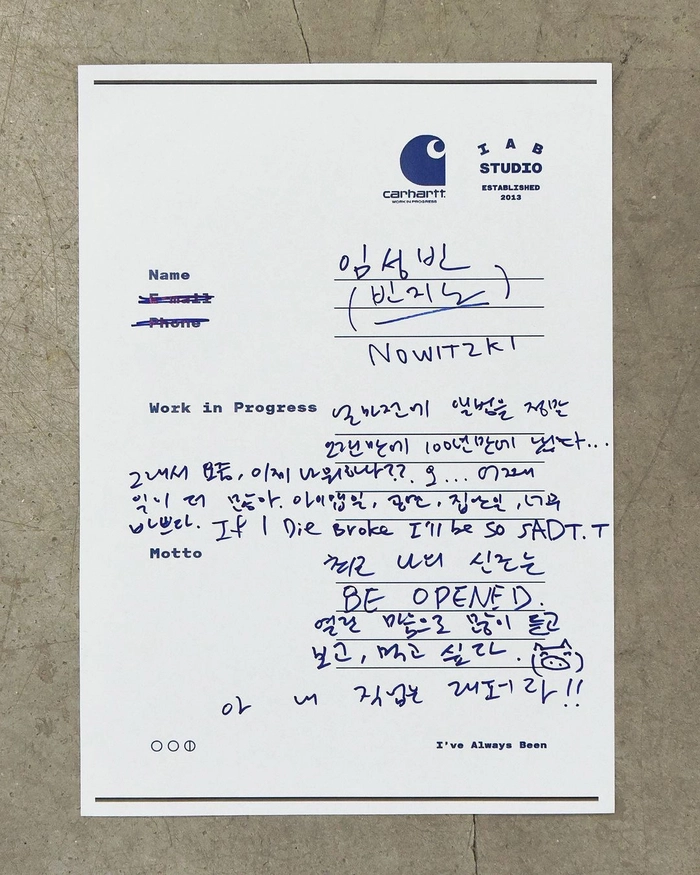 carhartt.
WORK IN PROGRESS
I A B
STUDIO
ESTABLISHED
2013
Name
E-mail
Phone
임성빈
(빈지노)
NOWITZKI
Work in Progress
얼마전에 앨범을 정말
오랜만에 100년만에 냈다...
그래서 보통, 이제 나 뭐하나?? 오... 어째
일이 더 많아. 아이앱일, 공연, 집안일, 너무
바쁘다. If I Die Broke I'll be so SADT.T
Motto
최근 나의 신조는
BE OPENED.
열린 마음으로 많이 듣고
보고, 먹고 싶다.
아 내 직업은 래퍼라!!
I've Always Been